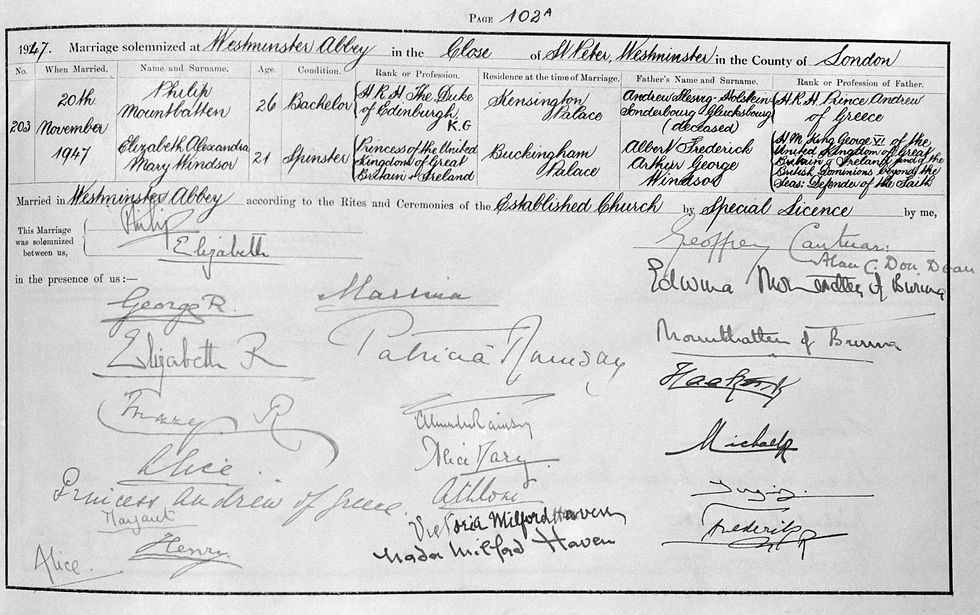 PAGE 102A
1947. Marriage solemnized at Westminster Abbey in the Close of St Peter, Westminster in the County of London
No. When Married. Name and Surname. Age. Condition. Rank or Profession. Residence at the time of Marriage. Father's Name and Surname. Rank or Profession of Father.
203 20th November 1947
Philip Mountbatten 26 Bachelor H.R.H. The Duke of Edinburgh K.G Kensington Palace Andrew Slesvig-Holstein Sonderbourg Glucksbourg (deceased) H.R.H Prince Andrew of Greece
Elizabeth Alexandra Mary Windsor 21 Spinster Princess of the United Kingdom of Great Britain & Ireland Buckingham Palace Albert Frederick Arthur George Windsor H.M. King George VI of the United Kingdom of Great Britain & Ireland and of the British Dominions beyond the Seas: Defender of the Faith
Married in Westminster Abbey according to the Rites and Ceremonies of the Established Church by Special Licence by me,
This Marriage was solemnized between us,
Philip
Elizabeth
Geoffrey Cantuar:
Alan C. Don, Dean
in the presence of us:—
George R.
Elizabeth R
R
Alice
Princess Andrew of Greece
Margaret
Henry.
Alice.
Marina
Patricia Ramsay
Alexander Ramsay
Alice Mary
Athlone
Victoria Milford Haven
Nada Milford Haven
Edwina Mountbatten of Burma
Mountbatten of Burma
Haakon
Michael R
Frederika R